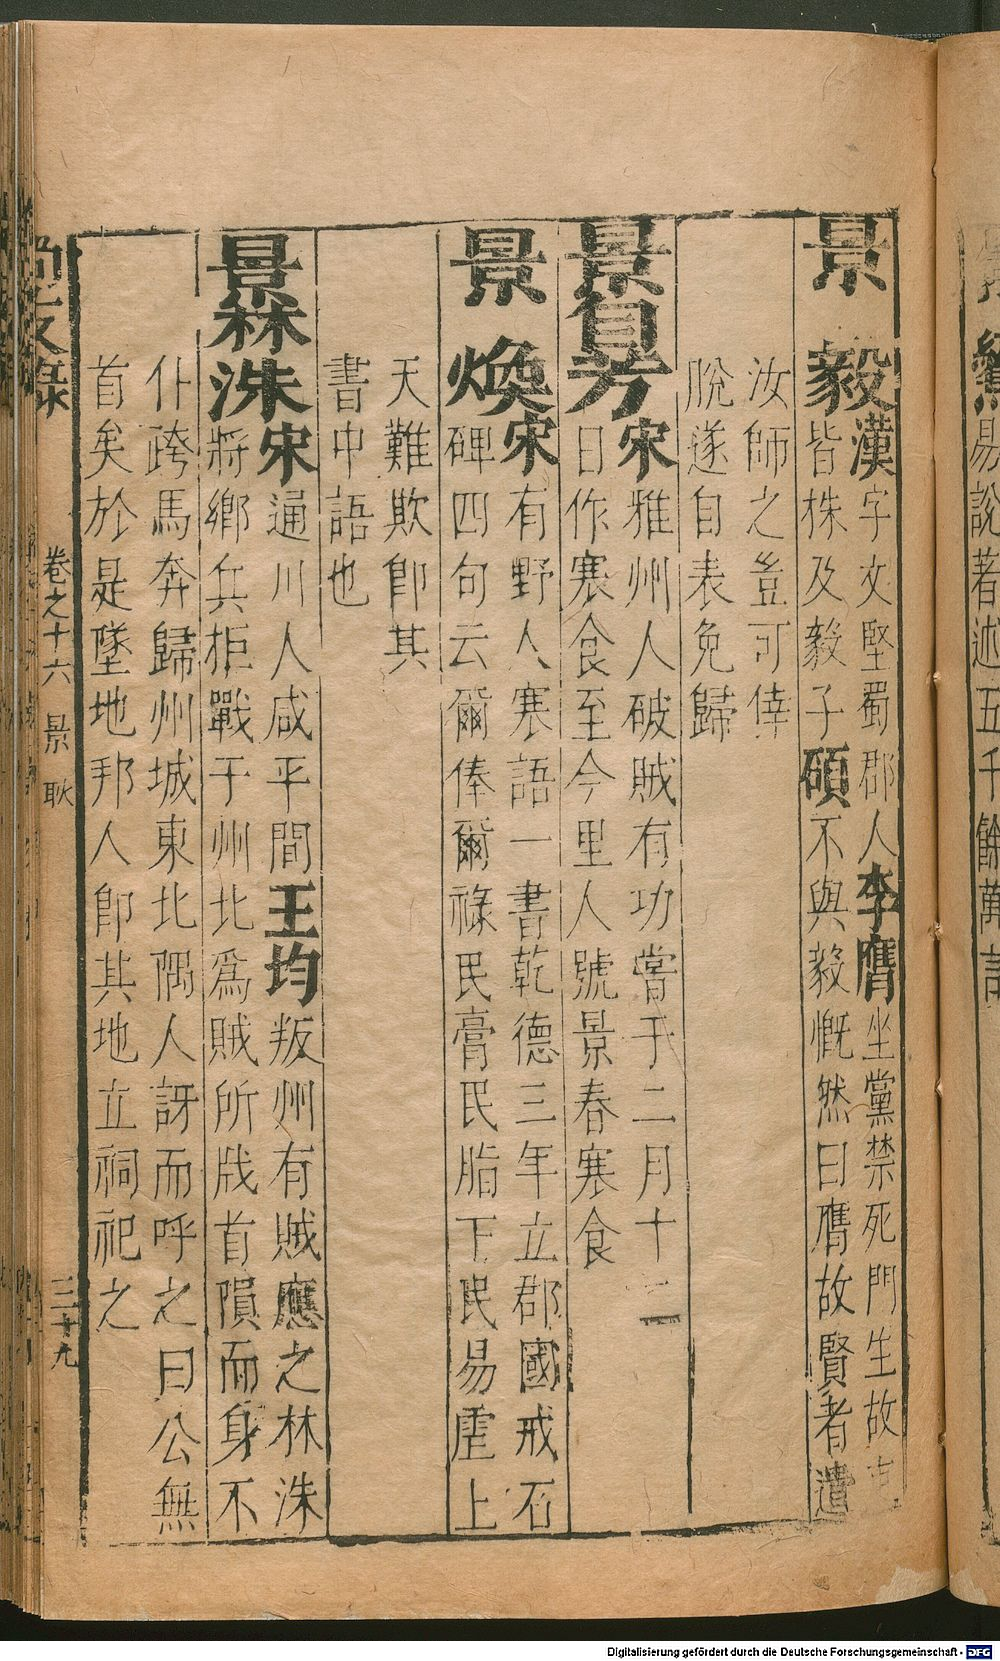 景毅漢字文堅蜀郡人李膺坐黨禁死門生故
皆株及毅子碩不與毅慨然曰膺故賢者遣
汝師之豈可倖
脫遂自表免歸
景思芳宋雅州人破賊有功嘗于二月十二
日作寒食至今里人號景春寒食
景煥宋有野人寒語一書乾德三年立郡國戒石
碑四句云爾俸爾祿民膏民脂下民易虐上
天難欺卽其
書中語也
景森洙宋通川人咸平間王均叛州有賊應之林洙
將鄉兵拒戰于州北爲賊所戕首隕而身不
仆跨馬奔歸州城東北隅人訝而呼之曰公無
首矣於是墜地邦人卽其地立祠祀之
卷之十六 景 耿 三十九
易說著述五千餘萬言
Digitalisierung gefördert durch die Deutsche Forschungsgemeinschaft - DFG